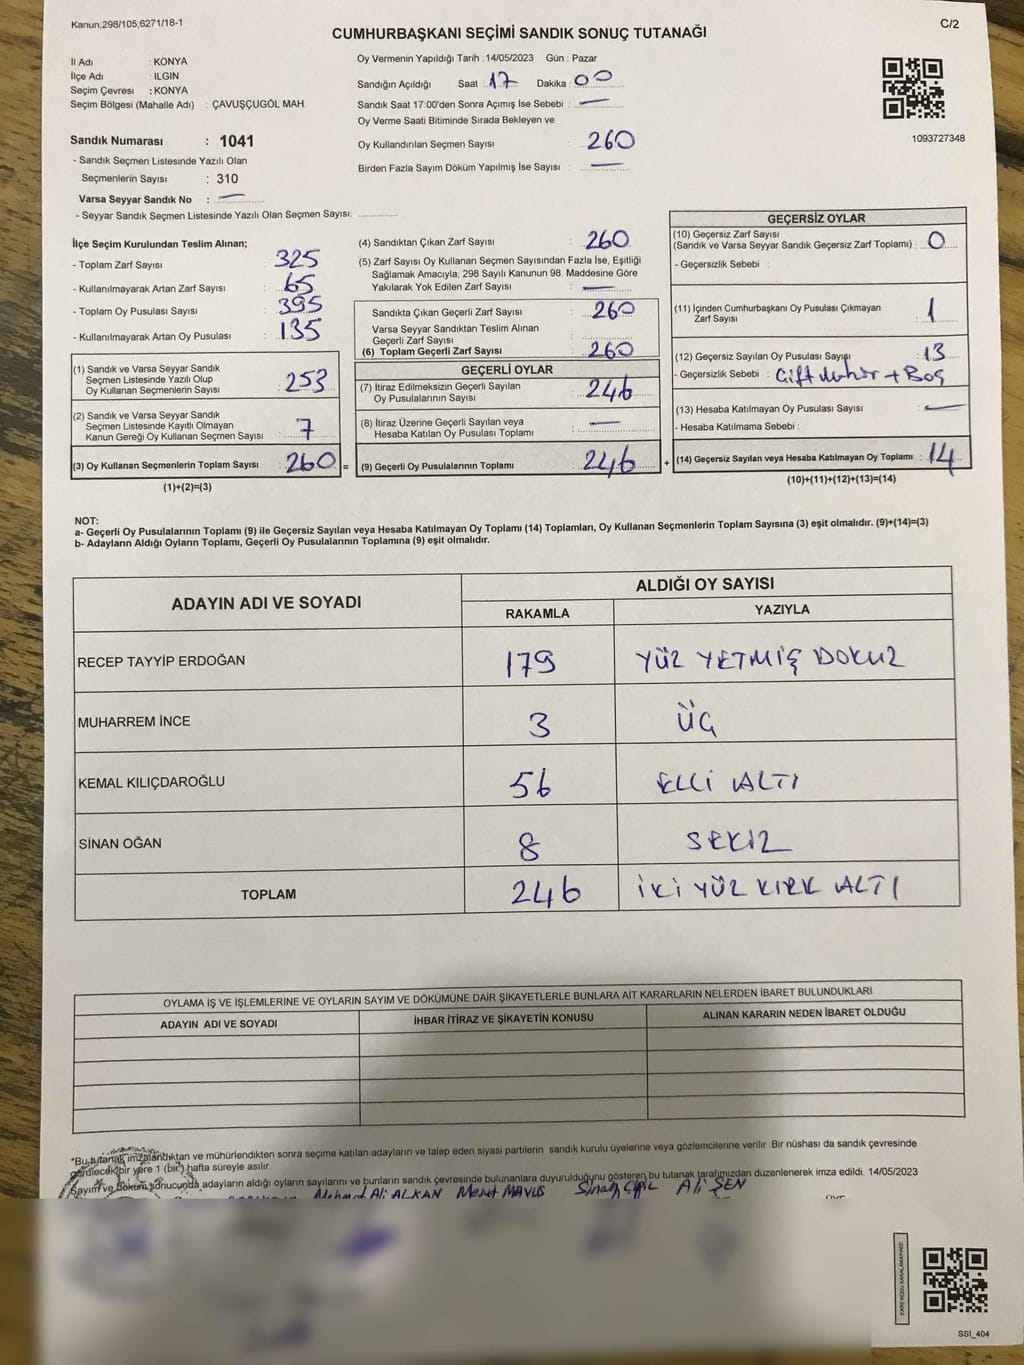 Kanun;298/105,6271/18-1
C/2
CUMHURBAŞKANI SEÇİMİ SANDIK SONUÇ TUTANAĞI
İl Adı : KONYA
İlçe Adı : ILGIN
Seçim Çevresi : KONYA
Seçim Bölgesi (Mahalle Adı) : ÇAVUŞÇUGÖL MAH.
Sandık Numarası : 1041
- Sandık Seçmen Listesinde Yazılı Olan
Seçmenlerin Sayısı : 310
Varsa Seyyar Sandık No : —
- Seyyar Sandık Seçmen Listesinde Yazılı Olan Seçmen Sayısı:
Oy Vermenin Yapıldığı Tarih :14/05/2023 Gün : Pazar
Sandığın Açıldığı Saat : 17 Dakika : 00
Sandık Saat 17:00'den Sonra Açımış İse Sebebi : —
Oy Verme Saati Bitiminde Sırada Bekleyen ve
Oy Kullandırılan Seçmen Sayısı : 260
Birden Fazla Sayım Döküm Yapılmış İse Sayısı : —
1093727348
İlçe Seçim Kurulundan Teslim Alınan;
- Toplam Zarf Sayısı : 325
- Kullanılmayarak Artan Zarf Sayısı : 65
- Toplam Oy Pusulası Sayısı : 395
- Kullanılmayarak Artan Oy Pusulası : 135
(1) Sandık ve Varsa Seyyar Sandık
Seçmen Listesinde Yazılı Olup
Oy Kullanan Seçmenlerin Sayısı : 253
(2) Sandık ve Varsa Seyyar Sandık
Seçmen Listesinde Kayıtlı Olmayan
Kanun Gereği Oy Kullanan Seçmen Sayısı : 7
(3) Oy Kullanan Seçmenlerin Toplam Sayısı : 260 =
(1)+(2)=(3)
(4) Sandıktan Çıkan Zarf Sayısı : 260
(5) Zarf Sayısı Oy Kullanan Seçmen Sayısından Fazla İse, Eşitliği
Sağlamak Amacıyla, 298 Sayılı Kanunun 98. Maddesine Göre
Yakılarak Yok Edilen Zarf Sayısı : —
Sandıkta Çıkan Geçerli Zarf Sayısı : 260
Varsa Seyyar Sandıktan Teslim Alınan
Geçerli Zarf Sayısı :
(6) Toplam Geçerli Zarf Sayısı : 260
GEÇERLİ OYLAR
(7) İtiraz Edilmeksizin Geçerli Sayılan
Oy Pusulalarının Sayısı : 246
(8) İtiraz Üzerine Geçerli Sayılan veya
Hesaba Katılan Oy Pusulası Toplamı : —
(9) Geçerli Oy Pusulalarının Toplamı : 246 +
GEÇERSİZ OYLAR
(10) Geçersiz Zarf Sayısı
(Sandık ve Varsa Seyyar Sandık Geçersiz Zarf Toplamı) : 0
- Geçersizlik Sebebi :
(11) İçinden Cumhurbaşkanı Oy Pusulası Çıkmayan
Zarf Sayısı : 1
(12) Geçersiz Sayılan Oy Pusulası Sayısı : 13
- Geçersizlik Sebebi : Çift Mühür + Boş
(13) Hesaba Katılmayan Oy Pusulası Sayısı : —
- Hesaba Katılmama Sebebi :
(14) Geçersiz Sayılan veya Hesaba Katılmayan Oy Toplamı : 14
(10)+(11)+(12)+(13)=(14)
NOT:
a- Geçerli Oy Pusulalarının Toplamı (9) ile Geçersiz Sayılan veya Hesaba Katılmayan Oy Toplamı (14) Toplamları, Oy Kullanan Seçmenlerin Toplam Sayısına (3) eşit olmalıdır. (9)+(14)=(3)
b- Adayların Aldığı Oyların Toplamı, Geçerli Oy Pusulalarının Toplamına (9) eşit olmalıdır.
ADAYIN ADI VE SOYADI
ALDIĞI OY SAYISI
RAKAMLA YAZIYLA
RECEP TAYYİP ERDOĞAN 179 YÜZ YETMİŞ DOKUZ
MUHARREM İNCE 3 ÜÇ
KEMAL KILIÇDAROĞLU 56 ELLİ ALTI
SİNAN OĞAN 8 SEKİZ
TOPLAM 246 İKİ YÜZ KIRK ALTI
OYLAMA İŞ VE İŞLEMLERİNE VE OYLARIN SAYIM VE DÖKÜMÜNE DAİR ŞİKAYETLERLE BUNLARA AİT KARARLARIN NELERDEN İBARET BULUNDUKLARI
ADAYIN ADI VE SOYADI İHBAR İTİRAZ VE ŞİKAYETİN KONUSU ALINAN KARARIN NEDEN İBARET OLDUĞU
*Bu tutanak imzalandıktan ve mühürlendikten sonra seçime katılan adayların ve talep eden siyasi partilerin sandık kurulu üyelerine veya gözlemcilerine verilir. Bir nüshası da sandık çevresinde
görülecek bir yere 1 (bir) hafta süreyle asılır.
Sayım ve döküm sonucunda adayların aldığı oyların sayılarını ve bunların sandık çevresinde bulunanlara duyurulduğunu gösteren bu tutanak tarafımızdan düzenlenerek imza edildi. 14/05/2023
Mehmet Ali ALKAN Mehmet MAVUŞ Sinan Ali ŞEN
KARE KODU KARALAMAYINIZ!
SSİ_404